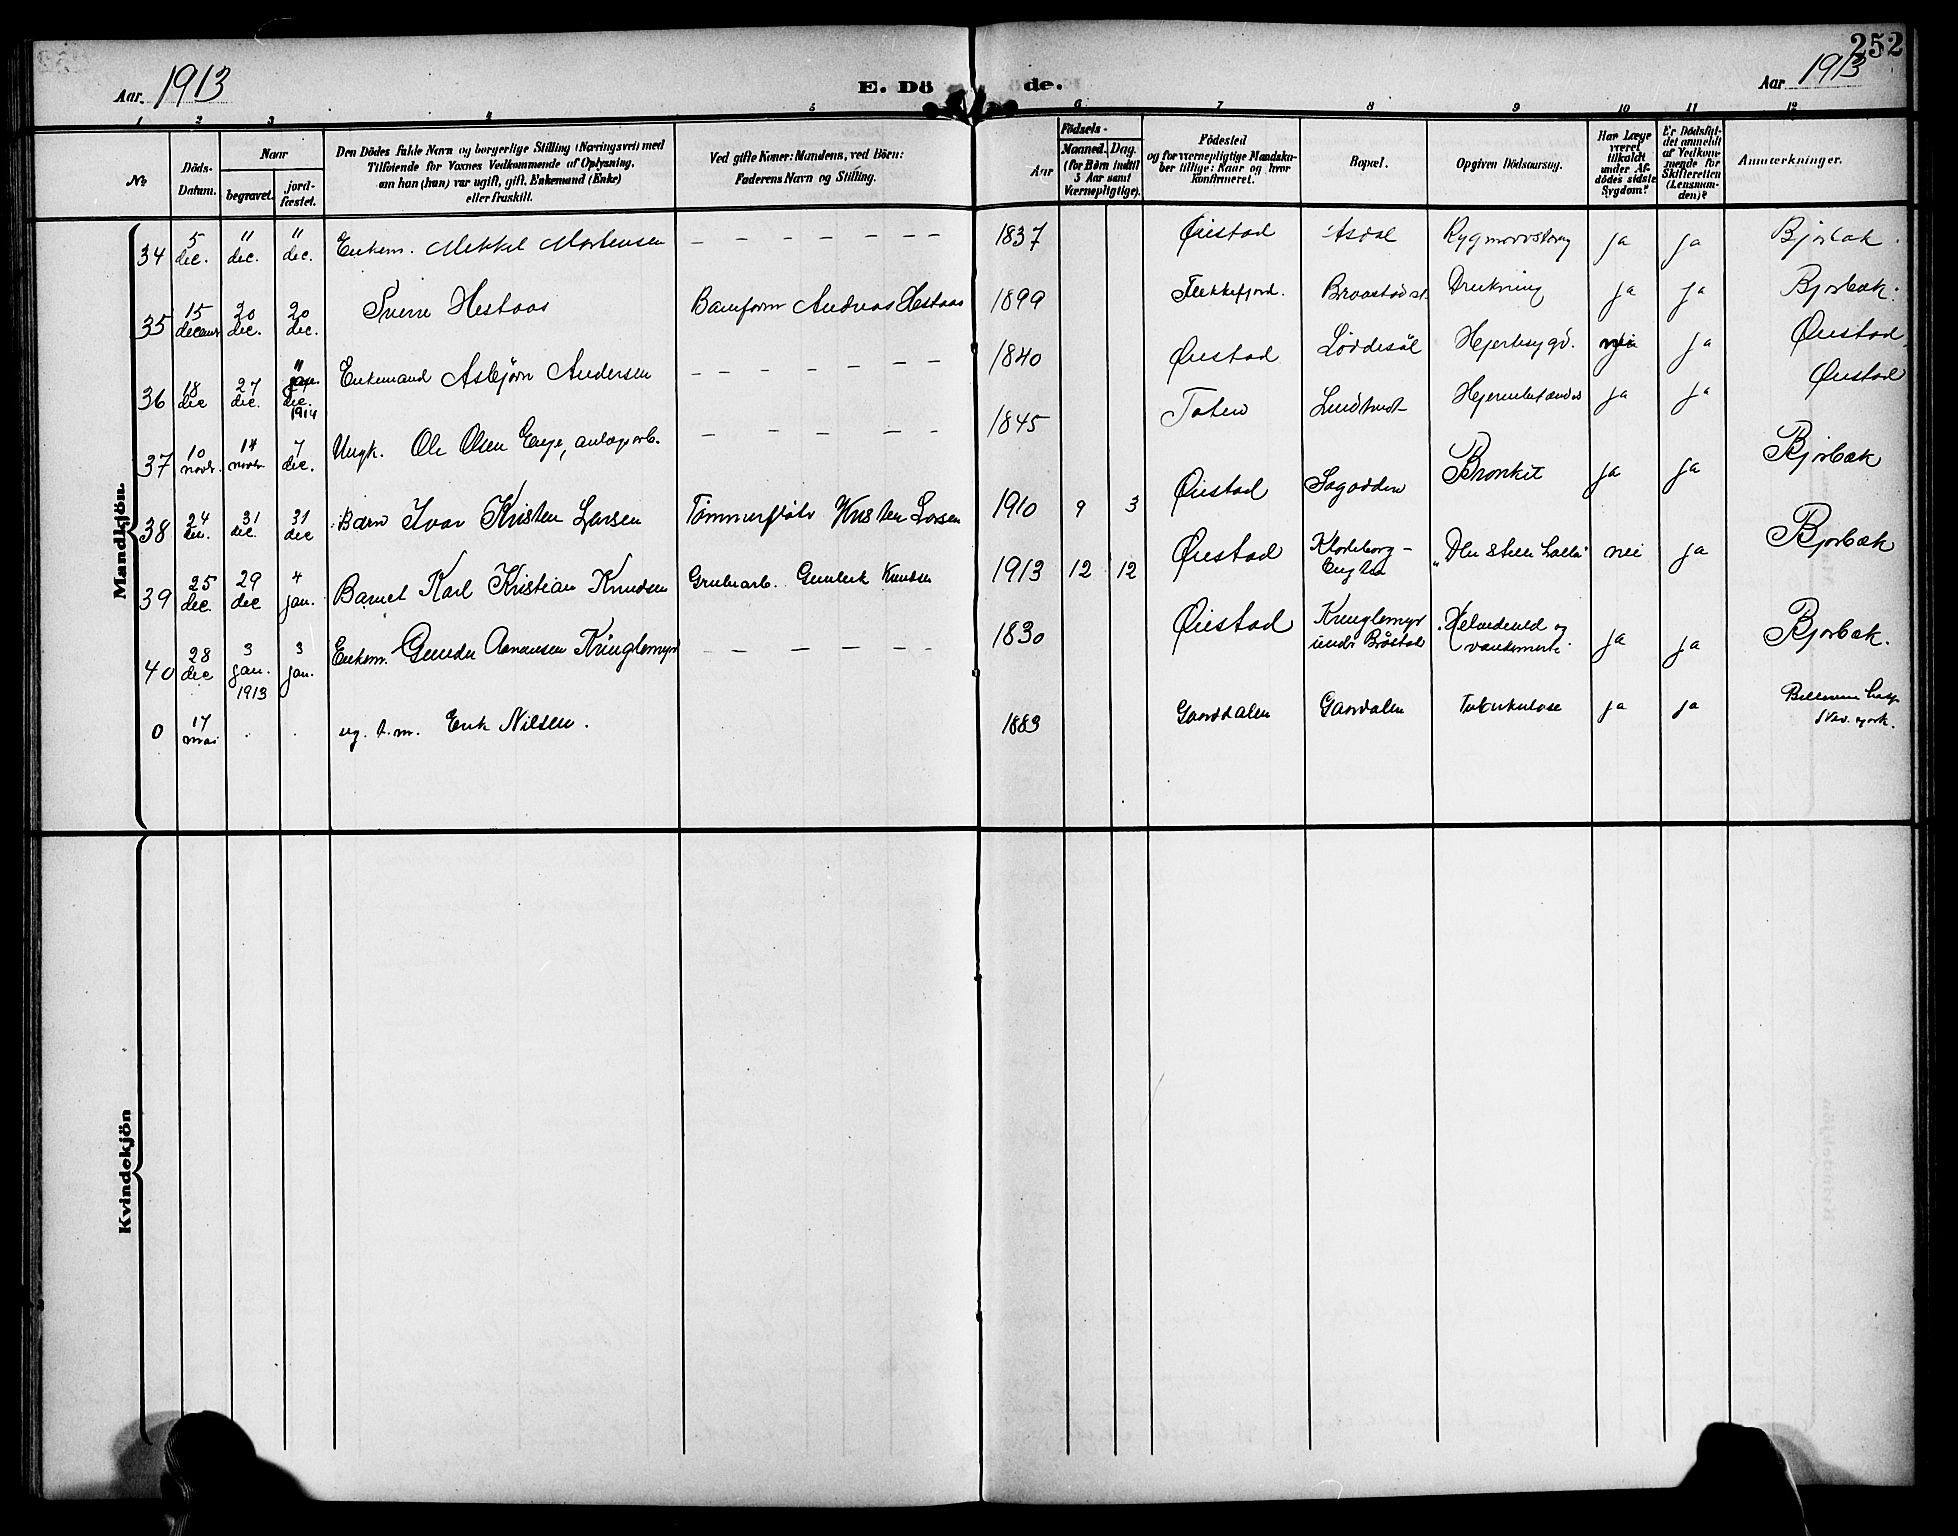 252
Aar. 1913
E. Dö de.
Aar 1913
1 2 3 4 5 6 7 8 9 10 11 12
No
Döds-
Datum.
Naar
begravet.
jord-
fæstet.
Den Dödes fulde Navn og borgerlige Stilling (Næringsvei) med
Tilföiende for Voxnes Vedkommende af Oplysning,
om han (hun) var ugift, gift, Enkemand (Enke)
eller fraskilt.
Ved gifte Koner: Mandens, ved Börn:
Faderens Navn og Stilling.
Aar
Födsels-
Maaned. Dag.
(for Börn indtil
3 Aar samt
Værnepligtige).
Födested
og for værnepligtige Mandska-
ber tillige: Naar og hvor
konfirmeret.
Bopæl.
Opgiven Dödsaarsag.
Har Læge
været
tilkaldt
under Af-
dödes sidste
Sygdom?
Er Dödsfal-
det anmeldt
af Vedkom-
mende for
Skifteretten
(Lensman-
den)?
Anmærkninger.
Mandkjön.
34 5 dec. " dec. " dec. Enkem. Mikkel Mortensen — — — — — — 1837 Øiestad Asdal Rygmarvstæring ja ja Bjorbæk.
35 15 decbr 20 dec. 20 dec. Sverre Hestaas Baneform Andreas Hestaas 1899 Flekkefjord. Braastad st. Drukning ja ja Bjorbæk.
36 18 dec 27 dec. " jan. 1914 Enkemand Asbjørn Andersen — — — — — — 1840 Øiestad Løddesøl Hjertesygd. nei ja Øiestad.
37 10 novbr. 14 novbr 7 dec. Ungk. Ole Olsen Enge, anlægsarb. — — — — — 1845 Toten Lindtveit ja ja Øiestad
38 24 dec. 31 dec. 31 dec Barn Ivar Kristen Larsen Tømmerfløter Kristen Larsen 1910 9 3 Øiestad Sagodden Bronkit ja ja Bjorbæk
39 25 dec. 29 dec 4 jan. Barnet Karl Kristian Knudsen Grubearb. Gunleik Knudsen 1913 12 12 Øiestad Klodeborg – nei ja Bjorbæk
40 28 dec 3 jan. 1913 3 jan. Enkem. Gunder Aanonsen Kringlemyr — — — — — — 1830 Øiestad Kringlemyr under Bråstad Helvedesild og ja ja Bjorbæk.
0 17 mai . . ug. s.m. Erik Nilsen. 1883 Gaarddalen Gaardalen Tuberkulose ja ja Bellevue hosp. New. york.
Kvindekjön